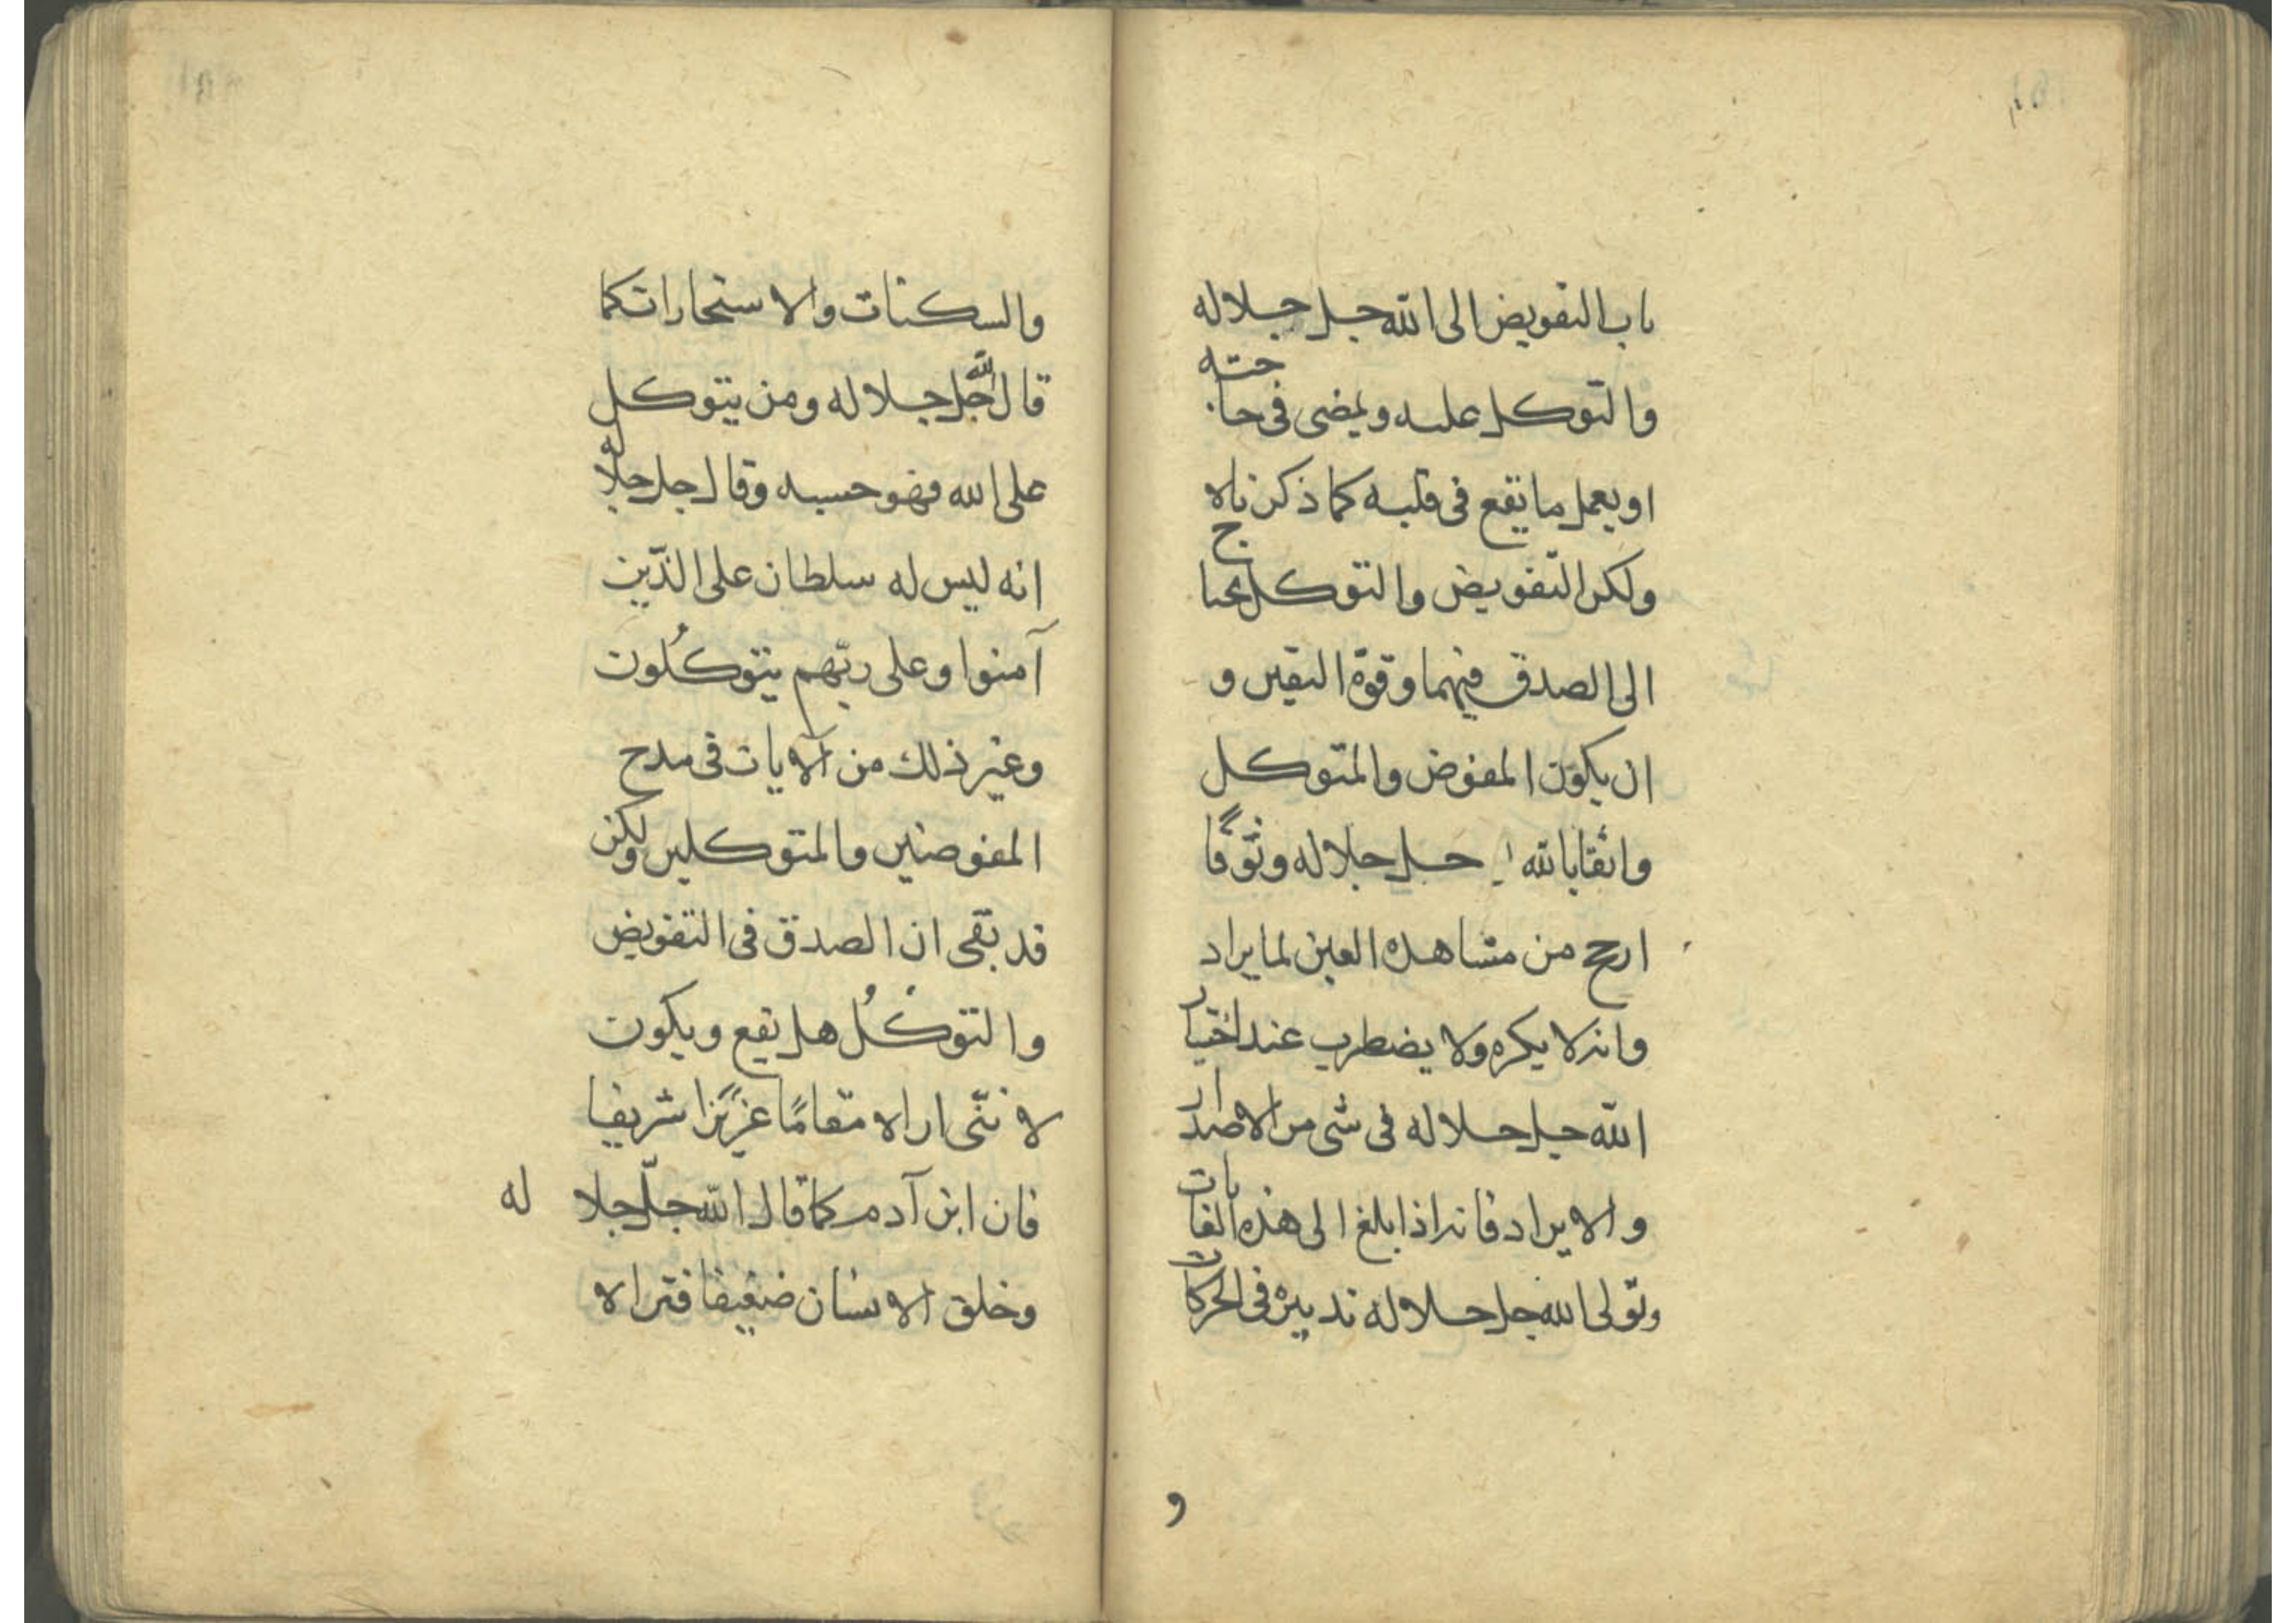 باب التفويض الى الله جل جلاله
والتوكل عليه ويمضى فى حاجته
او يعمل ما يقع فى قلبه كما ذكرناه
ولكن التفويض والتوكل يحتاج
الى الصدق فيهما وقوة اليقين و
ان يكون المفوض والمتوكل
واثقا بالله جل جلاله وثوقًا
ارجح من مشاهده العين لما يراد
وانه لا يكره ولا يضطرب عند اختيار
الله جل جلاله فى شى من الاصدار
والايراد فانه اذا بلغ الى هذه الغايات
وتولى الله جل جلاله تدبيره فى الحركات
و
والسكنات والاستخارات كما
قال الله جل جلاله ومن يتوكل
على الله فهو حسبه وقال جل جلاله
انه ليس له سلطان على الذين
آمنوا وعلى ربهم يتوكلون
وغير ذلك من الآيات فى مدح
المفوضين والمتوكلين ولكن
قد بقى ان الصدق فى التفويض
والتوكُّل هل يقع ويكون
لاننى اراه مقامًا عزيزًا شريفا
فان ابن آدم كما قال الله جلّ جلاله
وخلق الانسان ضعيفا فتراه